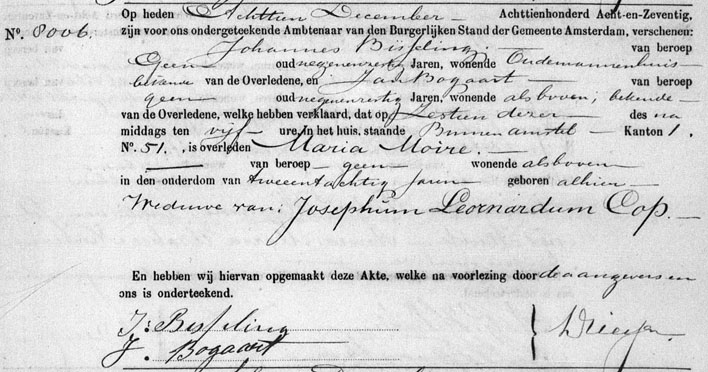 Op heden Achttien December Achttienhonderd Acht-en-Zeventig,
Nº. 8006. zijn voor ons ondergeteekende Ambtenaar van den Burgerlijken Stand der Gemeente Amsterdam, verschenen:
Johannes Bisseling van beroep
Geen oud negenenzestig Jaren, wonende Oudemannenhuis
bekende van de Overledene, en Jan Bogaart van beroep
geen oud negenenzestig Jaren, wonende alsboven, bekende
van de Overledene, welke hebben verklaard, dat op Zestien dezer des na
middags ten vijf ure, in het huis, staande Binnenamstel Kanton 1.
Nº. 51. , is overleden Maria Moire.
van beroep geen wonende alsboven
in den ouderdom van tweeentachtig Jaren geboren alhier
Weduwe van: Josephum Leornardum Cop.
En hebben wij hiervan opgemaakt deze Akte, welke na voorlezing door de aangevers en
ons is onderteekend.
J: Bisseling
J. Bogaart